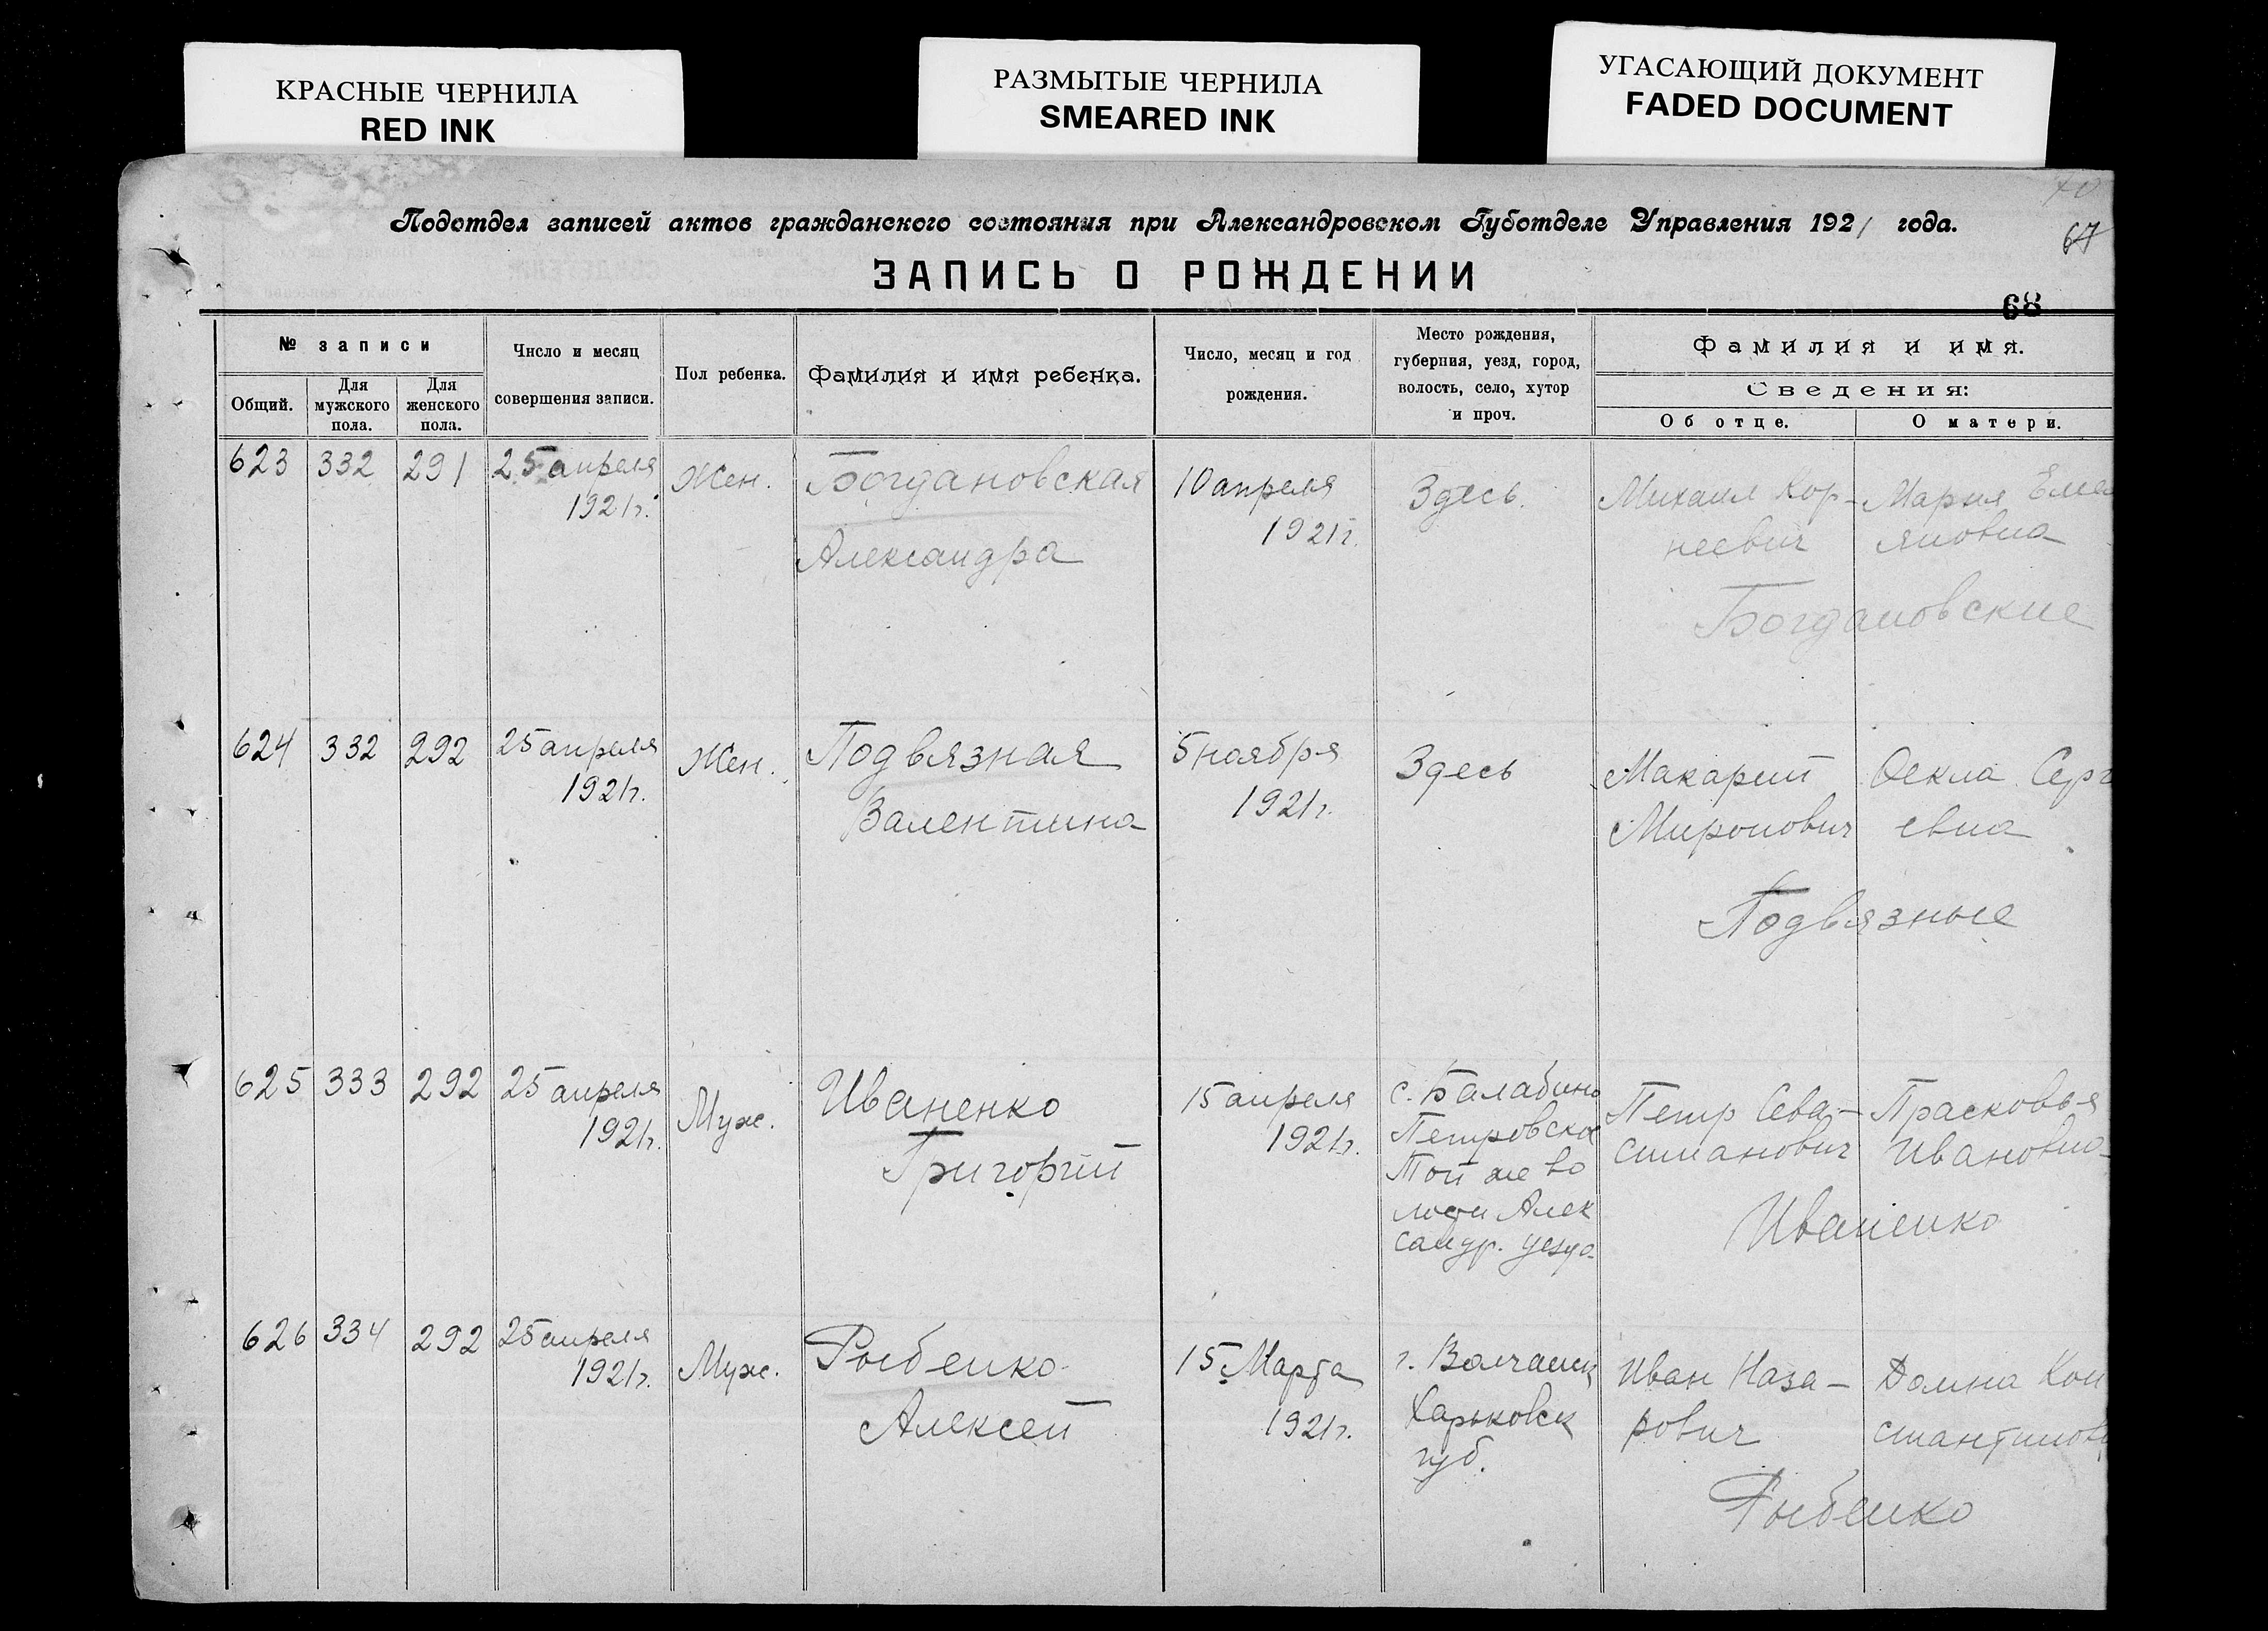 КРАСНЫЕ ЧЕРНИЛА
RED INK
РАЗМЫТЫЕ ЧЕРНИЛА
SMEARED INK
УГАСАЮЩИЙ ДОКУМЕНТ
FADED DOCUMENT
70
67
Подотдел записей актов гражданского состояния при Александровском Губотделе Управления 1921 года.
ЗАПИСЬ О РОЖДЕНИИ
68
№ записи
Общий.
Для мужского пола.
Для женского пола.
Число и месяц совершения записи.
Пол ребенка.
Фамилия и имя ребенка.
Число, месяц и год рождения.
Место рождения, губерния, уезд, город, волость, село, хутор и проч.
Фамилия и имя.
Сведения:
Об отце.
О матери.
623 332 291 25 апреля Жен. Богдановская 10 апреля Здесь. Михаил Кор- Мария Емел
1921г. Александра 1921г. неевич яновна
Богдановские
624 332 292 25 апреля Жен. Подвязная 5 ноября Здесь Макарий Фекла Серг
1921г. Валентина 1921г. Миронович евна
Подвязные
625 333 292 25 апреля Муж. Иваненко 15 апреля с. Балабино Петр Сева- Прасковья
1921г. Григорий 1921г. Петровское стианович Ивановна
Той же во
лости Алек
сандр. уезда
Иваненко
626 334 292 25 апреля Муж. Рыбенко 15 Марта г. Волчанск Иван Наза- Домна Кон
1921г. Алексей 1921г. Харьковск рович стантинов
губ.
Рыбенко